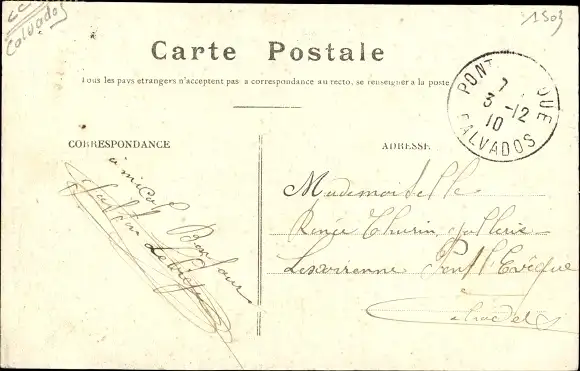 Calvados
1503
Carte Postale
Tous les pays étrangers n'acceptent pas la correspondance au recto, se renseigner à la poste
PONT QUE
7
3 -12
10
CALVADOS
CORRESPONDANCE
ADRESSE
amical Bonjour
Mademoiselle
Renée Thurin
Lexovienne Pont l'Évêque
Calvados